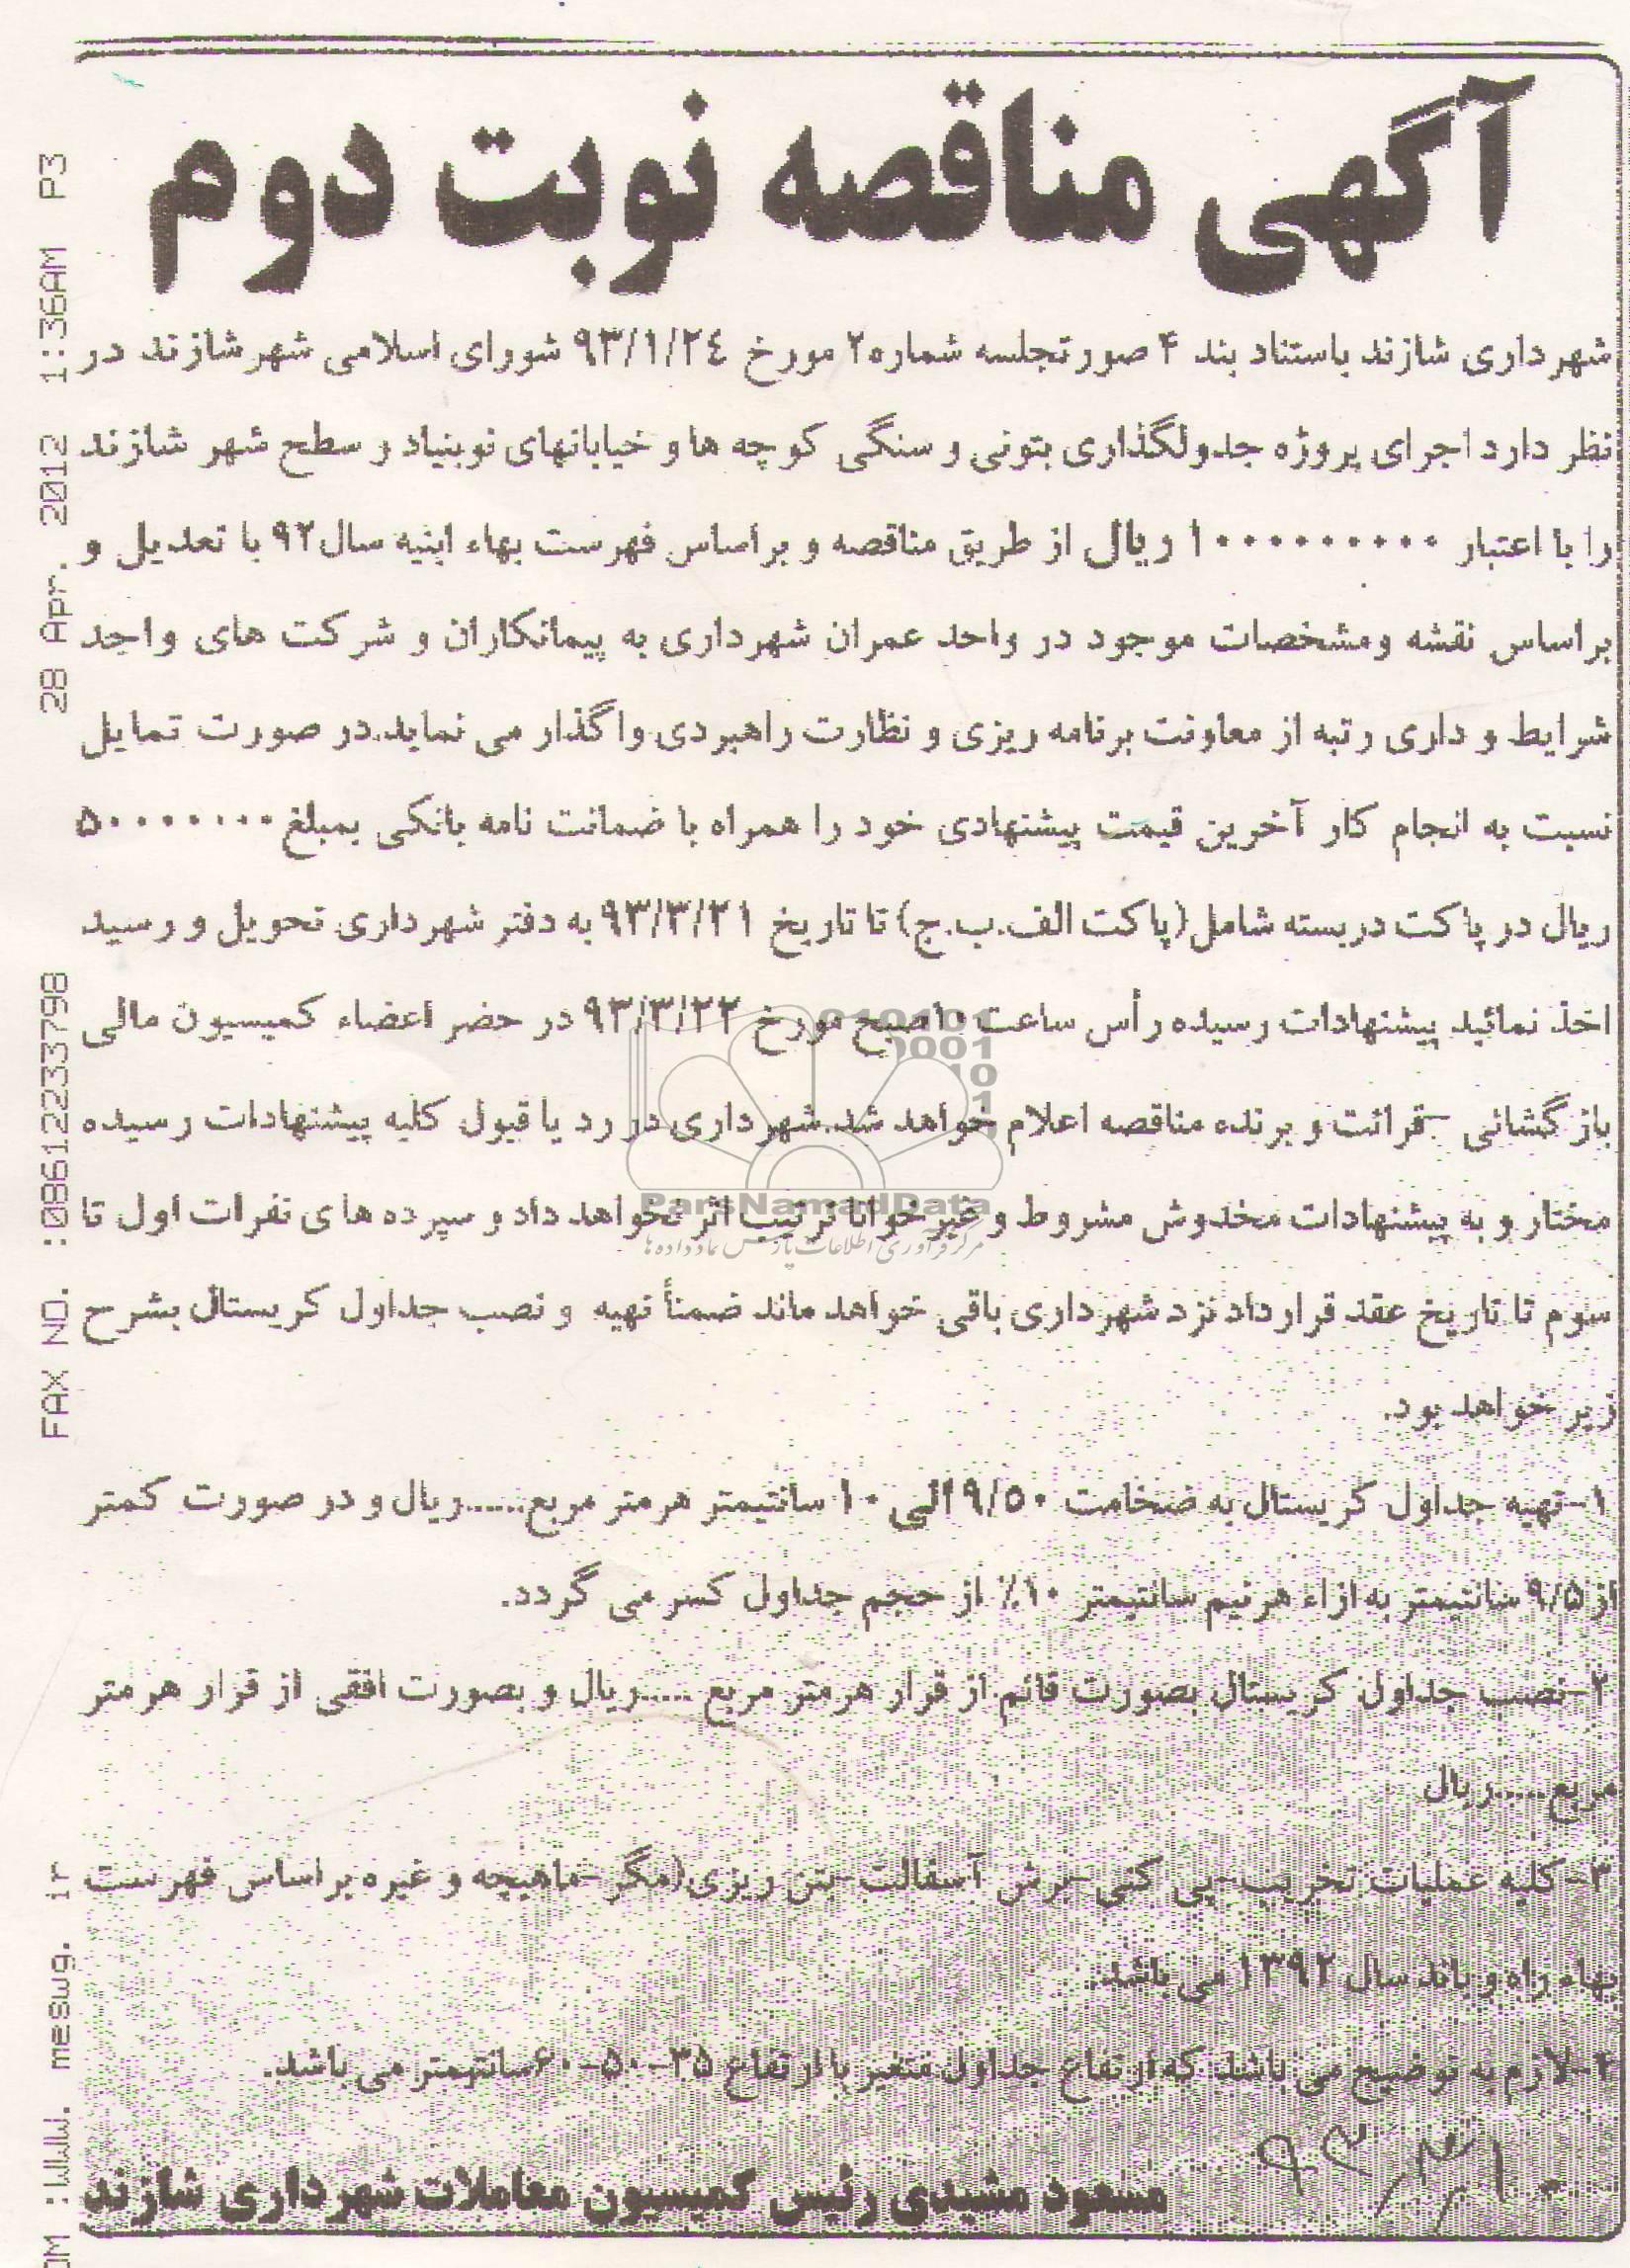 آگهی مناقصه نوبت دوم
شهرداری شازند باستناد بند ۴ صورتجلسه شماره۲ مورخ ۹۳/۱/۲٤ شورای اسلامی شهرشازند در
نظر دارد اجرای پروژه جدولگذاری بتونی و سنگی کوچه ها و خیابانهای نوبنیاد و سطح شهر شازند
را با اعتبار ۱۰۰۰۰۰۰۰۰۰۰ ریال از طریق مناقصه و براساس فهرست بهاء ابنیه سال۹۲ با تعدیل و
براساس نقشه ومشخصات موجود در واحد عمران شهرداری به پیمانکاران و شرکت های واجد
شرایط و داری رتبه از معاونت برنامه ریزی و نظارت راهبردی واگذار می نماید.در صورت تمایل
نسبت به انجام کار آخرین قیمت پیشنهادی خود را همراه با ضمانت نامه بانکی بمبلغ۵۰۰۰۰۰۰۰۰
ریال در پاکت دربسته شامل(پاکت الف.ب.ج) تا تاریخ ۹۳/۳/۲۱ به دفتر شهرداری تحویل و رسید
اخذ نمائید پیشنهادات رسیده رأس ساعت ۱۰صبح مورخ ۹۳/۳/۲۲ در حضر اعضاء کمیسیون مالی
بازگشائی -قرائت و برنده مناقصه اعلام خواهد شد.شهرداری در رد یا قبول کلیه پیشنهادات رسیده
مختار و به پیشنهادات مخدوش مشروط و غیر خوانا ترتیب اثر نخواهد داد و سپرده های نفرات اول تا
سوم تا تاریخ عقد قرارداد نزد شهرداری باقی خواهد ماند ضمناً تهیه و نصب جداول کریستال بشرح
زیر خواهد بود.
۱-تهیه جداول کریستال به ضخامت ۹/۵۰الی ۱۰ سانتیمتر هرمتر مربع......ریال و در صورت کمتر
از۹/۵ سانتیمتر به ازاء هرنیم سانتیمتر ۱۰٪ از حجم جداول کسر می گردد.
۲-نصب جداول کریستال بصورت قائم از قرار هرمتر مربع .....ریال و بصورت افقی از قرار هرمتر
مربع.....ریال
۳-کلیه عملیات تخریب-پی کنی-برش آسفالت-بتن ریزی(مگر-ماهیچه و غیره براساس فهرست
بهاء راه و باند سال ۱۳۹۲ می باشد.
۴-لازم به توضیح می باشد که ارتفاع جداول متغیر با ارتفاع ۳۵-۵۰-۶۰سانتیمتر می باشد.
مسعود مشیدی رئیس کمیسیون معاملات شهرداری شازند
28 Apr. 2012 1:36AM P3
FAX NO. :08612233798
:WWW. meswg. ir
ParsNamadData
مرکز فرآوری اطلاعات پارس نماد داده ها
010101
0001
10
1